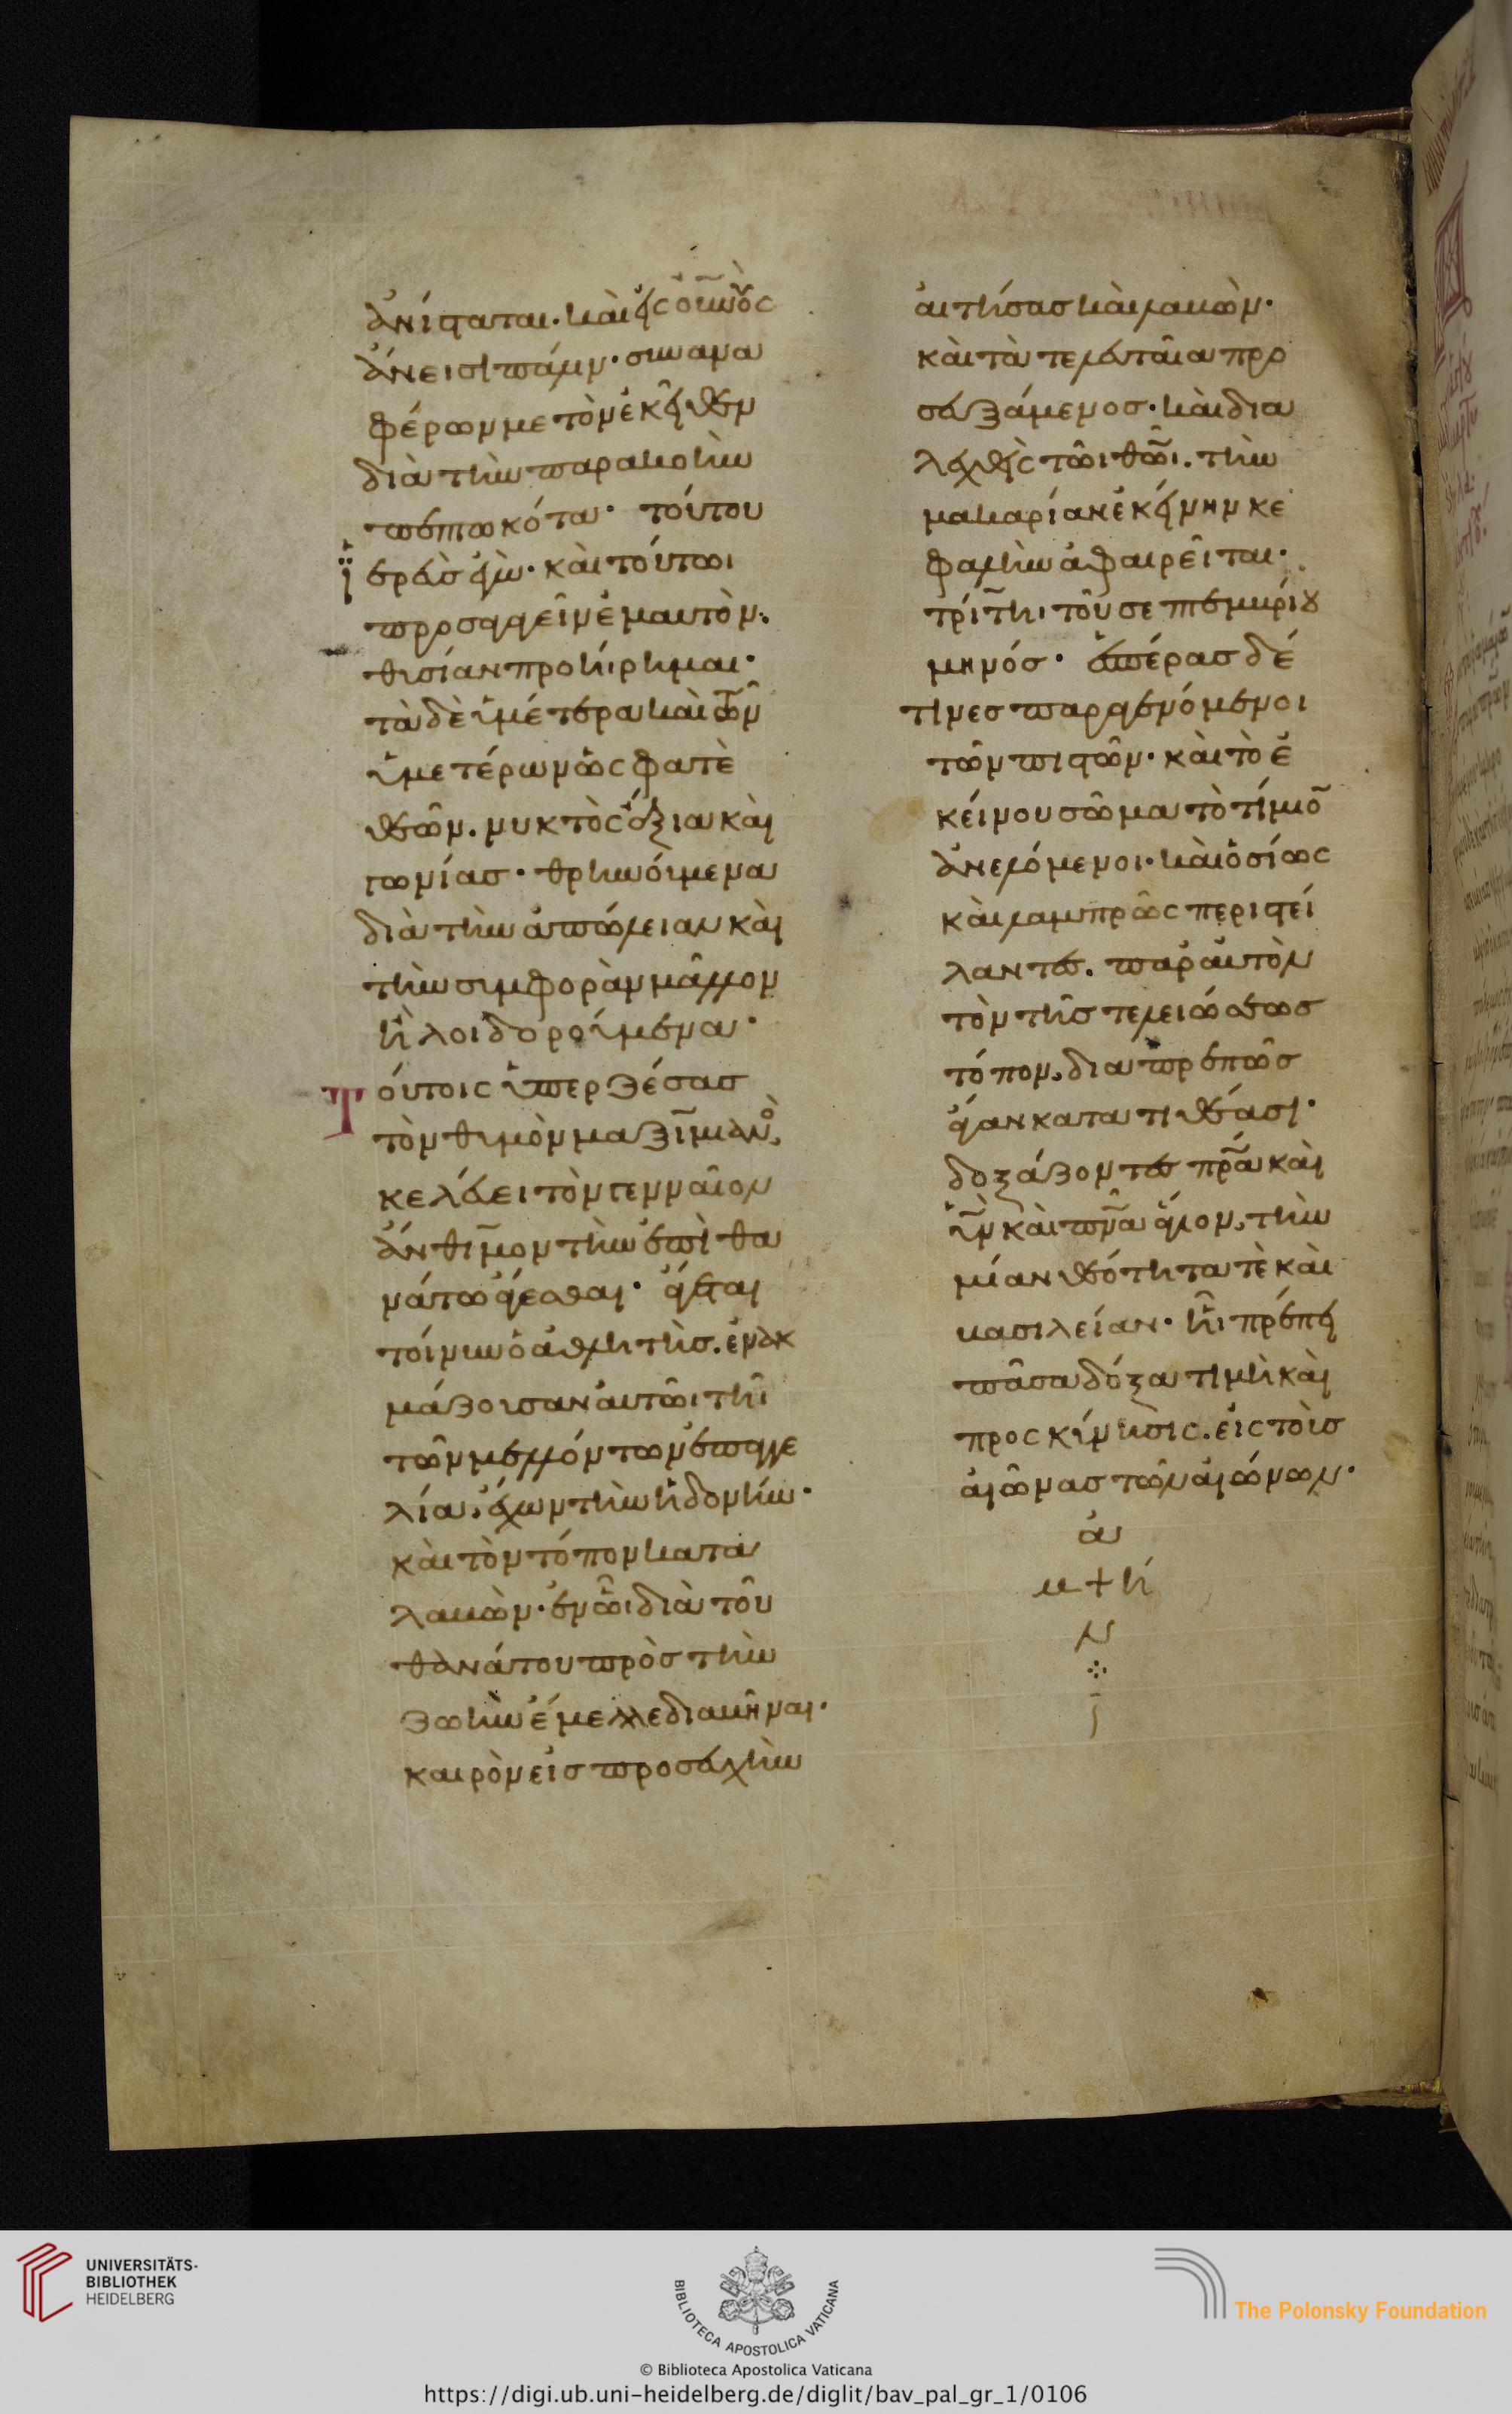 ἀνίσταται· καὶ εἰς οὐ̅ν̅ο̅ὺς
ἄνεισι πάλιν· συναμα
φέρων με τὸν ἐκεῖθεν
διὰ τὴν παρακοὴν
πεπτωκότα· τούτου
ϊερεὺς εἰμὶ· καὶ τούτωι
προσάγειν ἐμαυτὸν
θυσίαν προήρημαι·
τὰ δὲ ὑμέτερα καὶ τῶν
ὑμετέρων ὥς φατὲ
θεῶν. νυκτὸς ἄξια καὶ
γωνίας· θρηνούμενα
διὰ τὴν ἀπώλειαν καὶ
τὴν συμφορὰν μᾶλλον
ἢ λοιδορούμενα·
Τούτοις ὑπερζέσας
τὸν θυμὸν μαξιμιανὸ,
κελεύει τὸν γενναῖον
ἄνθιμον τὴν ἐπὶ θα
νάτω ἄγεσθαι· ἄγεται
τοίνυν ὁ ἀθλητὴς. ἐνακ
μάζουσαν αὐτῶι τῆι
τῶν μελλόντων ἐπαγγε
λία, ἔχων τὴν ἡδονήν·
καὶ τὸν τόπον κατα
λαβὼν· ἐν ὧι διὰ τοῦ
θανάτου πρὸς τὴν
ζωὴν ἔμελλε διαβῆναι·
καιρὸν εἰς προσευχὴν
αἰτήσας καὶ λαβὼν·
καὶ τὰ τελευταῖα προ
σευξάμενος· καὶ δια
λεχθεὶς τῶι θ̅ῶ̅ι. τὴν
μακαρίαν ἐκείνην κε
φαλὴν ἀφαιρεῖται·
τρίτηι τοῦ σεπτεμβρίου
μηνός· ἑσπέρας δέ
τινες παραγενόμενοι
τῶν πιστῶν· καὶ τὸ ἐ
κείνου σῶμα τὸ τίμιο̅
ἀνελόμενοι· καὶ ὁσίως
καὶ λαμπρῶς περιστεί
λαντες. παρ' αὐτὸν
τὸν τῆς τελειώσεως
τόπον, διαπρεπῶς
ἄγαν κατατιθέασι·
δοξάζοντες π̅ρ̅α̅ καὶ
υ̅ν̅ καὶ π̅ν̅α̅ ἅγιον, τὴν
μίαν θεότητα τὲ καὶ
βασιλείαν· ἧι πρέπει
πᾶσα δόξα τιμὴ καὶ
προσκύνησις. εἰς τοὺς
αἰῶνας τῶν αἰώνων·
ἀ
μ + ή
ν
⁘
UNIVERSITÄTS-
BIBLIOTHEK
HEIDELBERG
BIBLIOTECA APOSTOLICA VATICANA
The Polonsky Foundation
© Biblioteca Apostolica Vaticana
https://digi.ub.uni-heidelberg.de/diglit/bav_pal_gr_1/0106